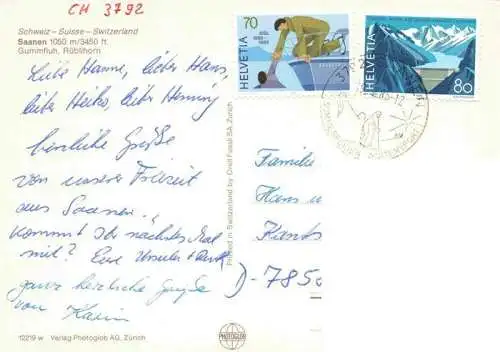 CH 3792
Schweiz - Suisse - Switzerland
Saanen 1050 m/3450 ft.
Gummfluh, Rüblihorn
Liebe Hanne, lieber Hans,
lieber Heiko, lieber Henning
herzliche Grüße
von unserer Freizeit
aus Saanen.
Kommt Ihr nächstes Mal
mit? Eure Ursula +
ganz herzliche Grüße
von Karin
12219 w Verlag Photoglob AG, Zürich
Printed in Switzerland by Orell Füssli SA, Zurich
PHOTOGLOB
70
1885
1985
HELVETIA
HELVETIA
80
Familie
Hans u
Kants
D-7850